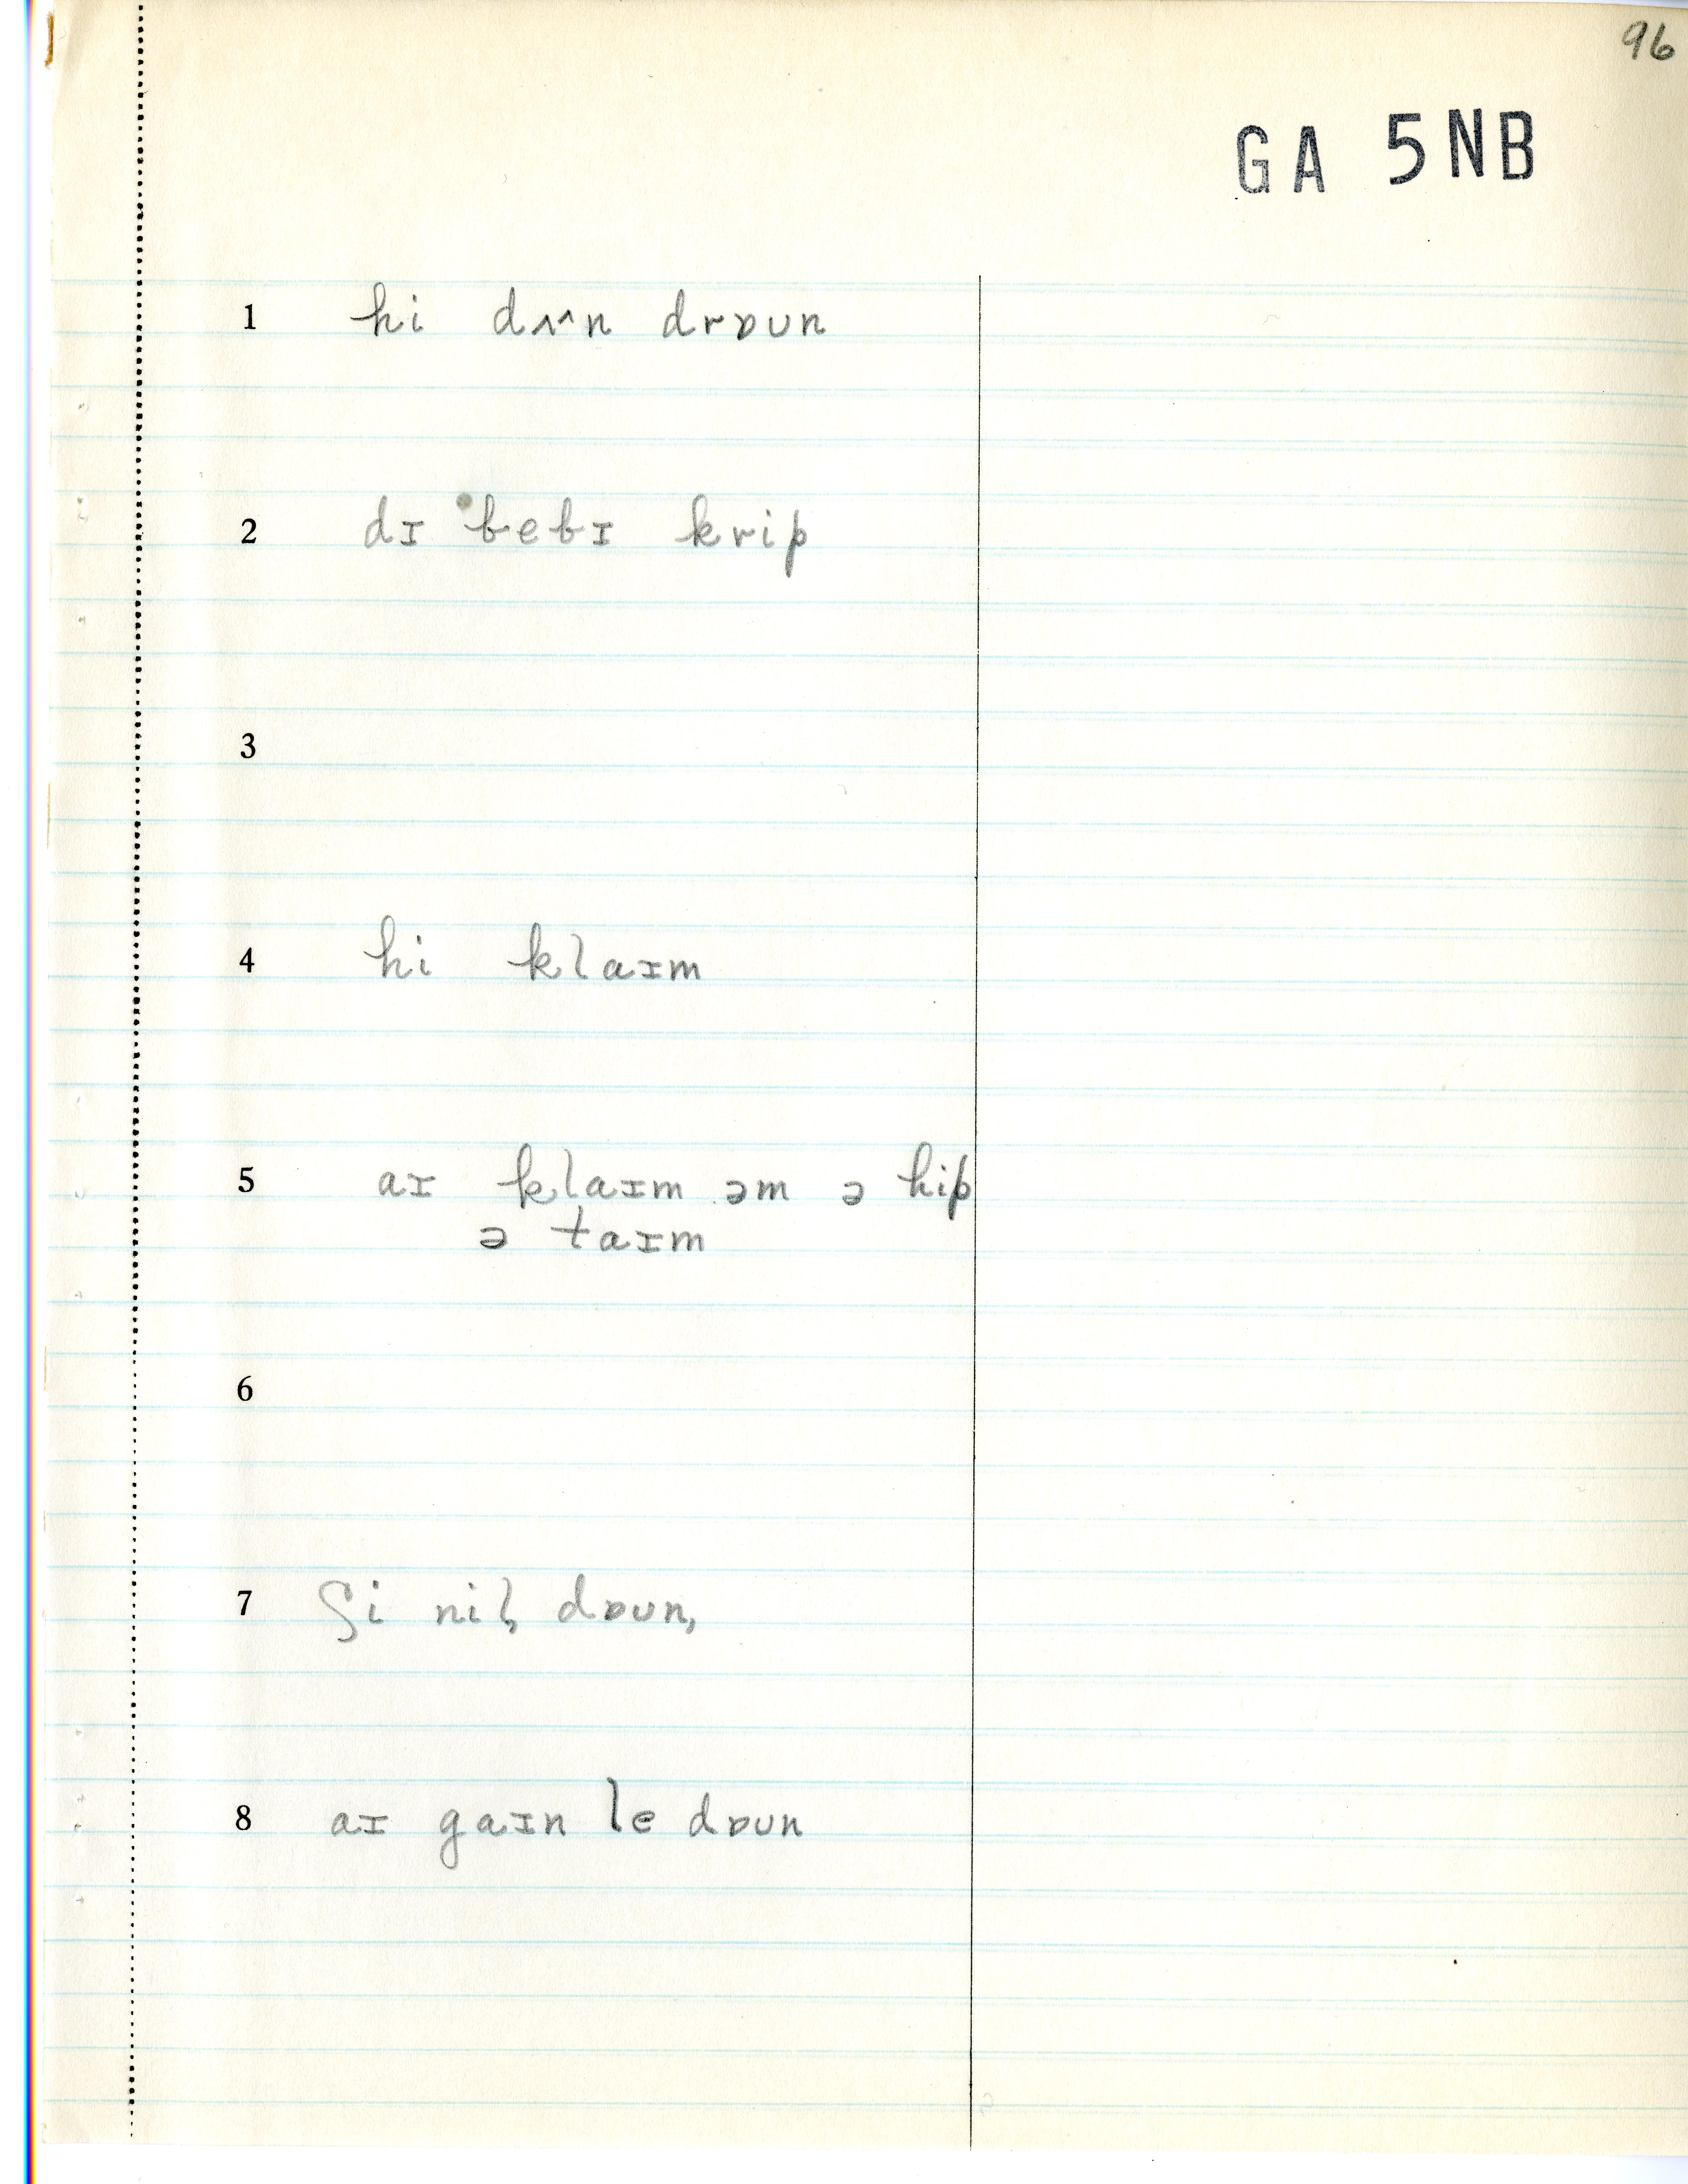 96
GA 5NB
1 hi dʌ^n drɒun
2 dɪ bebɪ krip
3
4 hi klaɪm
5 aɪ klaɪm əm ə hip
ə taɪm
6
7 ʃi nil, dɒun,
8 aɪ gaɪn le dɒun